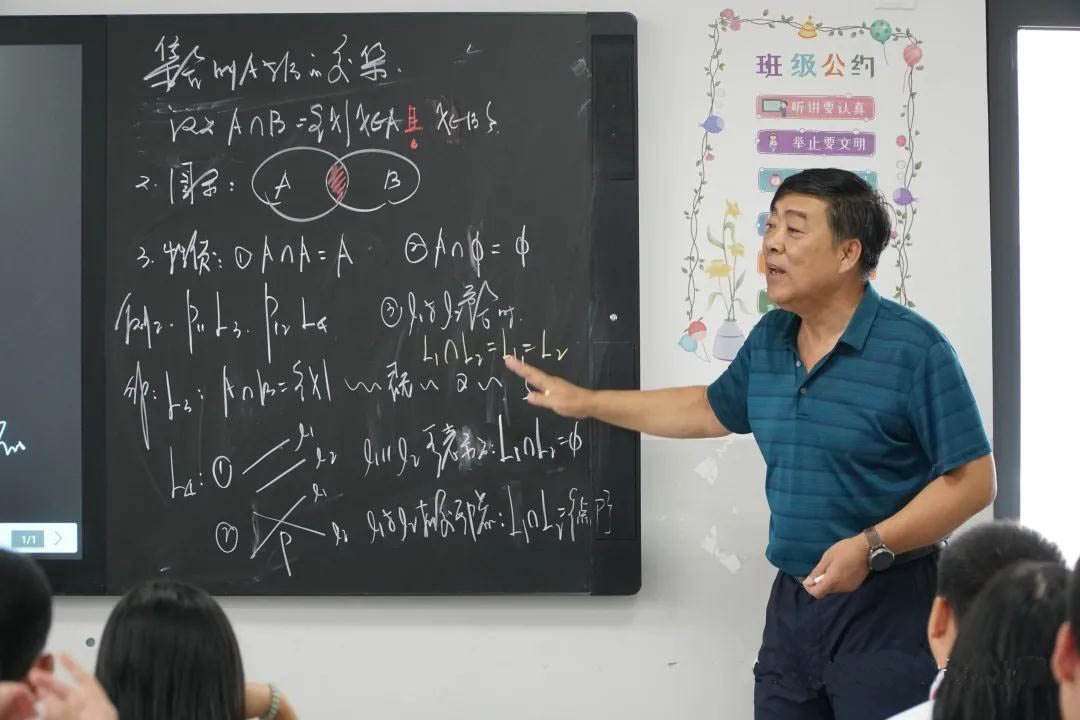 集合A与B的交集.
记作 A∩B={x|x∈A且 x∈B}.
2.图示: A B
3.性质:①A∩A=A ②A∩φ=φ
例2. P11 L3. P12 L4 ③l1与l2重合时.
L1∩L2=L1=L2
解:L3:A∩B={x|
L4:① l1 l2 l1∥l2可表示为:L1∩L2=φ
② l1 l2 P l1与l2相交于一点:L1∩L2={点P}
1/1
班级公约
听讲要认真
举止要文明